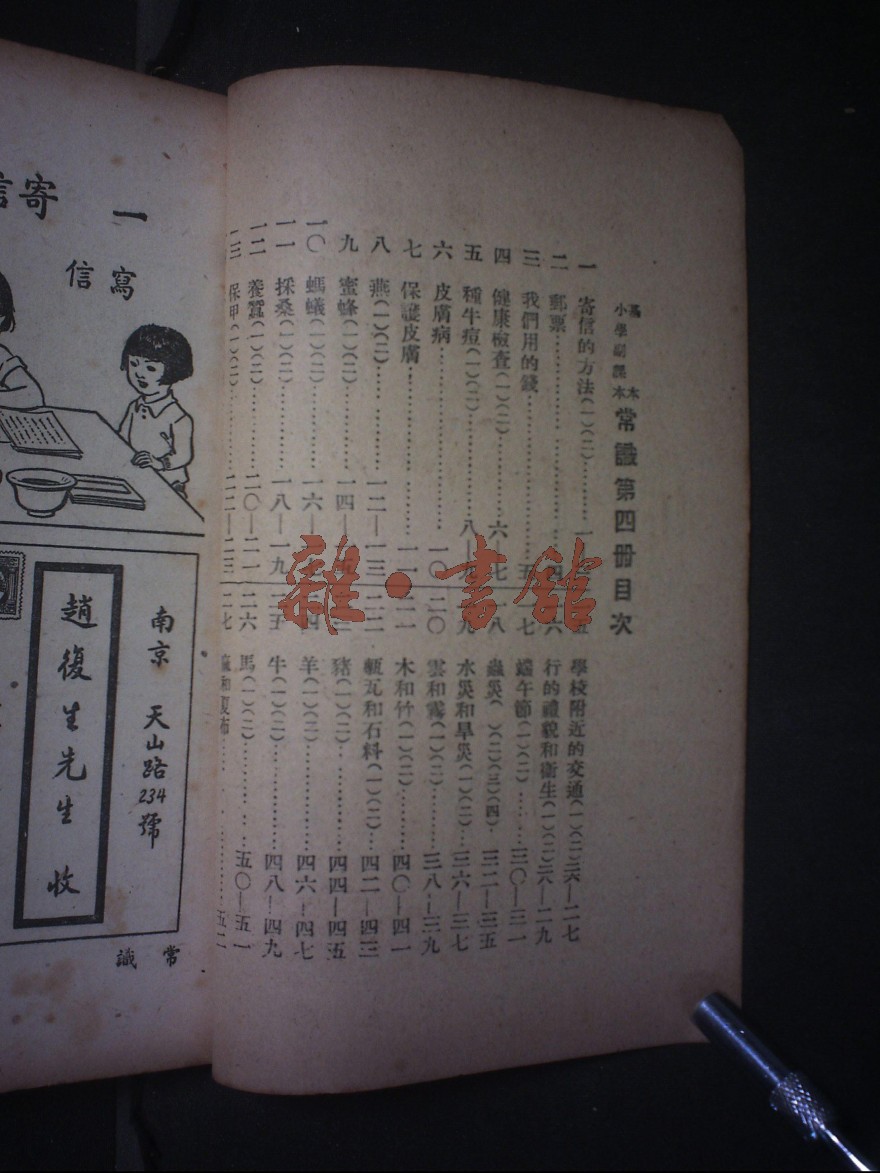 常識第四冊目次
一 寄信的方法(一)(二)
二 郵票
三 我們用的錢
四 健康檢查(一)(二) 六
五 種牛痘(一)(二) 八
六 皮膚病 一〇
七 保護皮膚
八 燕(一)(二) 一二—一三
九 蜜蜂(一)(二) 一四
一〇 螞蟻(一)(二) 一六
一一 採桑(一)(二) 一八—一九
一二 養蠶(一)(二) 二〇—二一
一三 保甲(一)(二) 二二—二三
學校附近的交通(一)(二) 二六—二七
行的禮貌和衛生(一)(二) 二八—二九
端午節(一)(二) 三〇—三一
蟲災( )(二)(三)(四) 三二—三五
水災和旱災(一)(二) 三六—三七
雲和霧(一)(二) 三八—三九
木和竹(一)(二) 四〇—四一
甎瓦和石料(一)(二) 四二—四三
豬(一)(二) 四四—四五
羊(一)(二) 四六—四七
牛(一)(二) 四八—四九
馬(一)(二) 五〇—五一
和夏布
雜·書館
一 寄信
寫信
南京 天山路234號
趙復生先生 收
常識